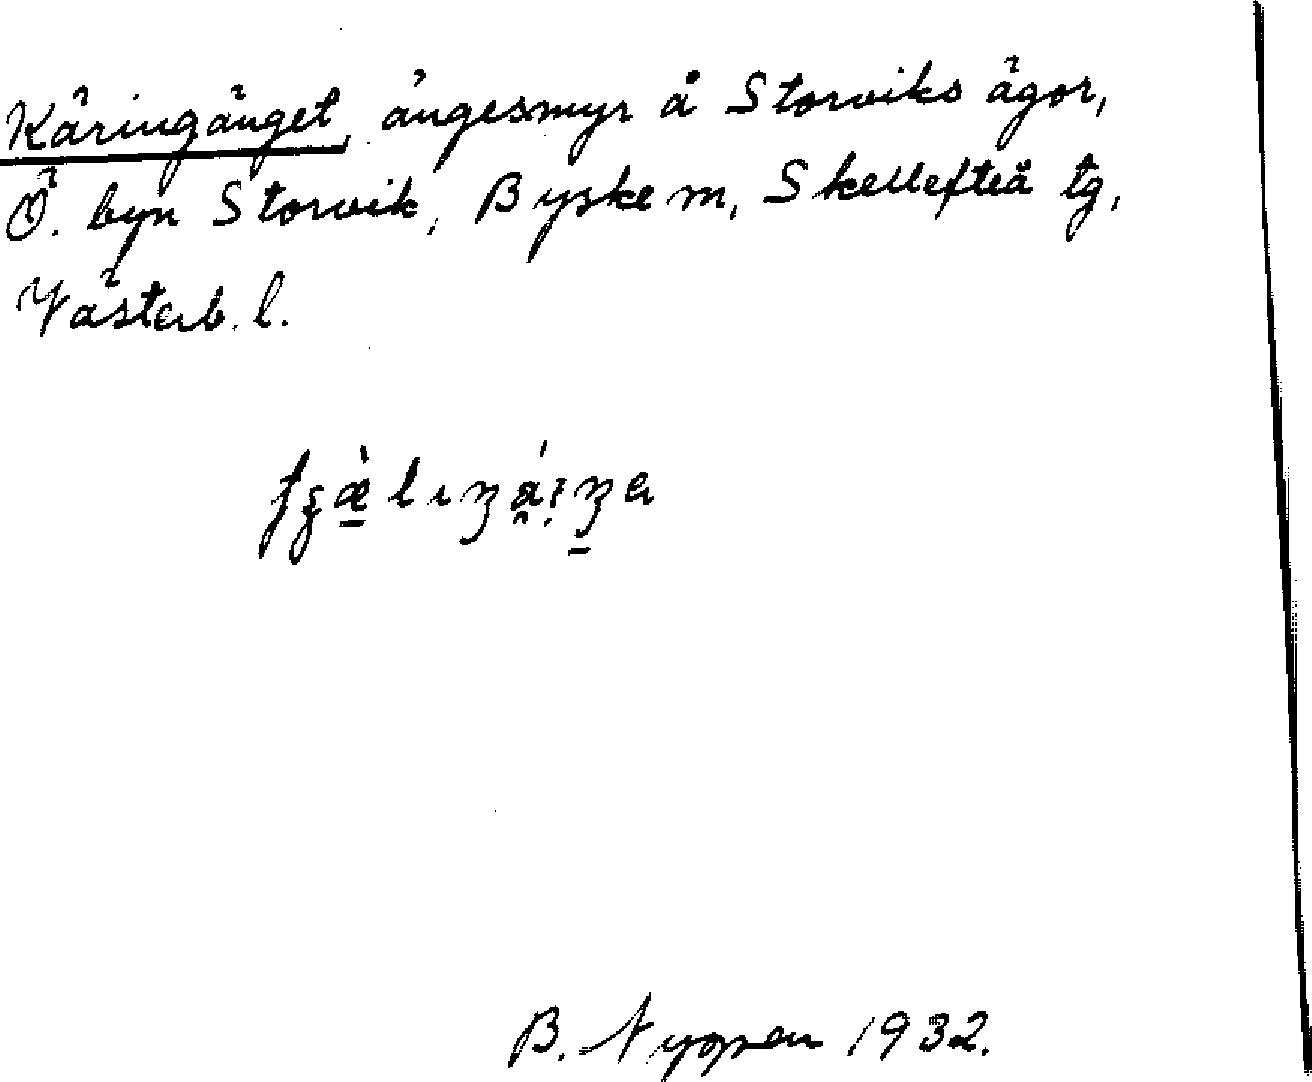 Käringänget, ängesmyr å Storviks ägor,
Ö. byn Storvik, Byske sn, Skellefteå tg,
Västerb. l.
B. Nyppen 1932.